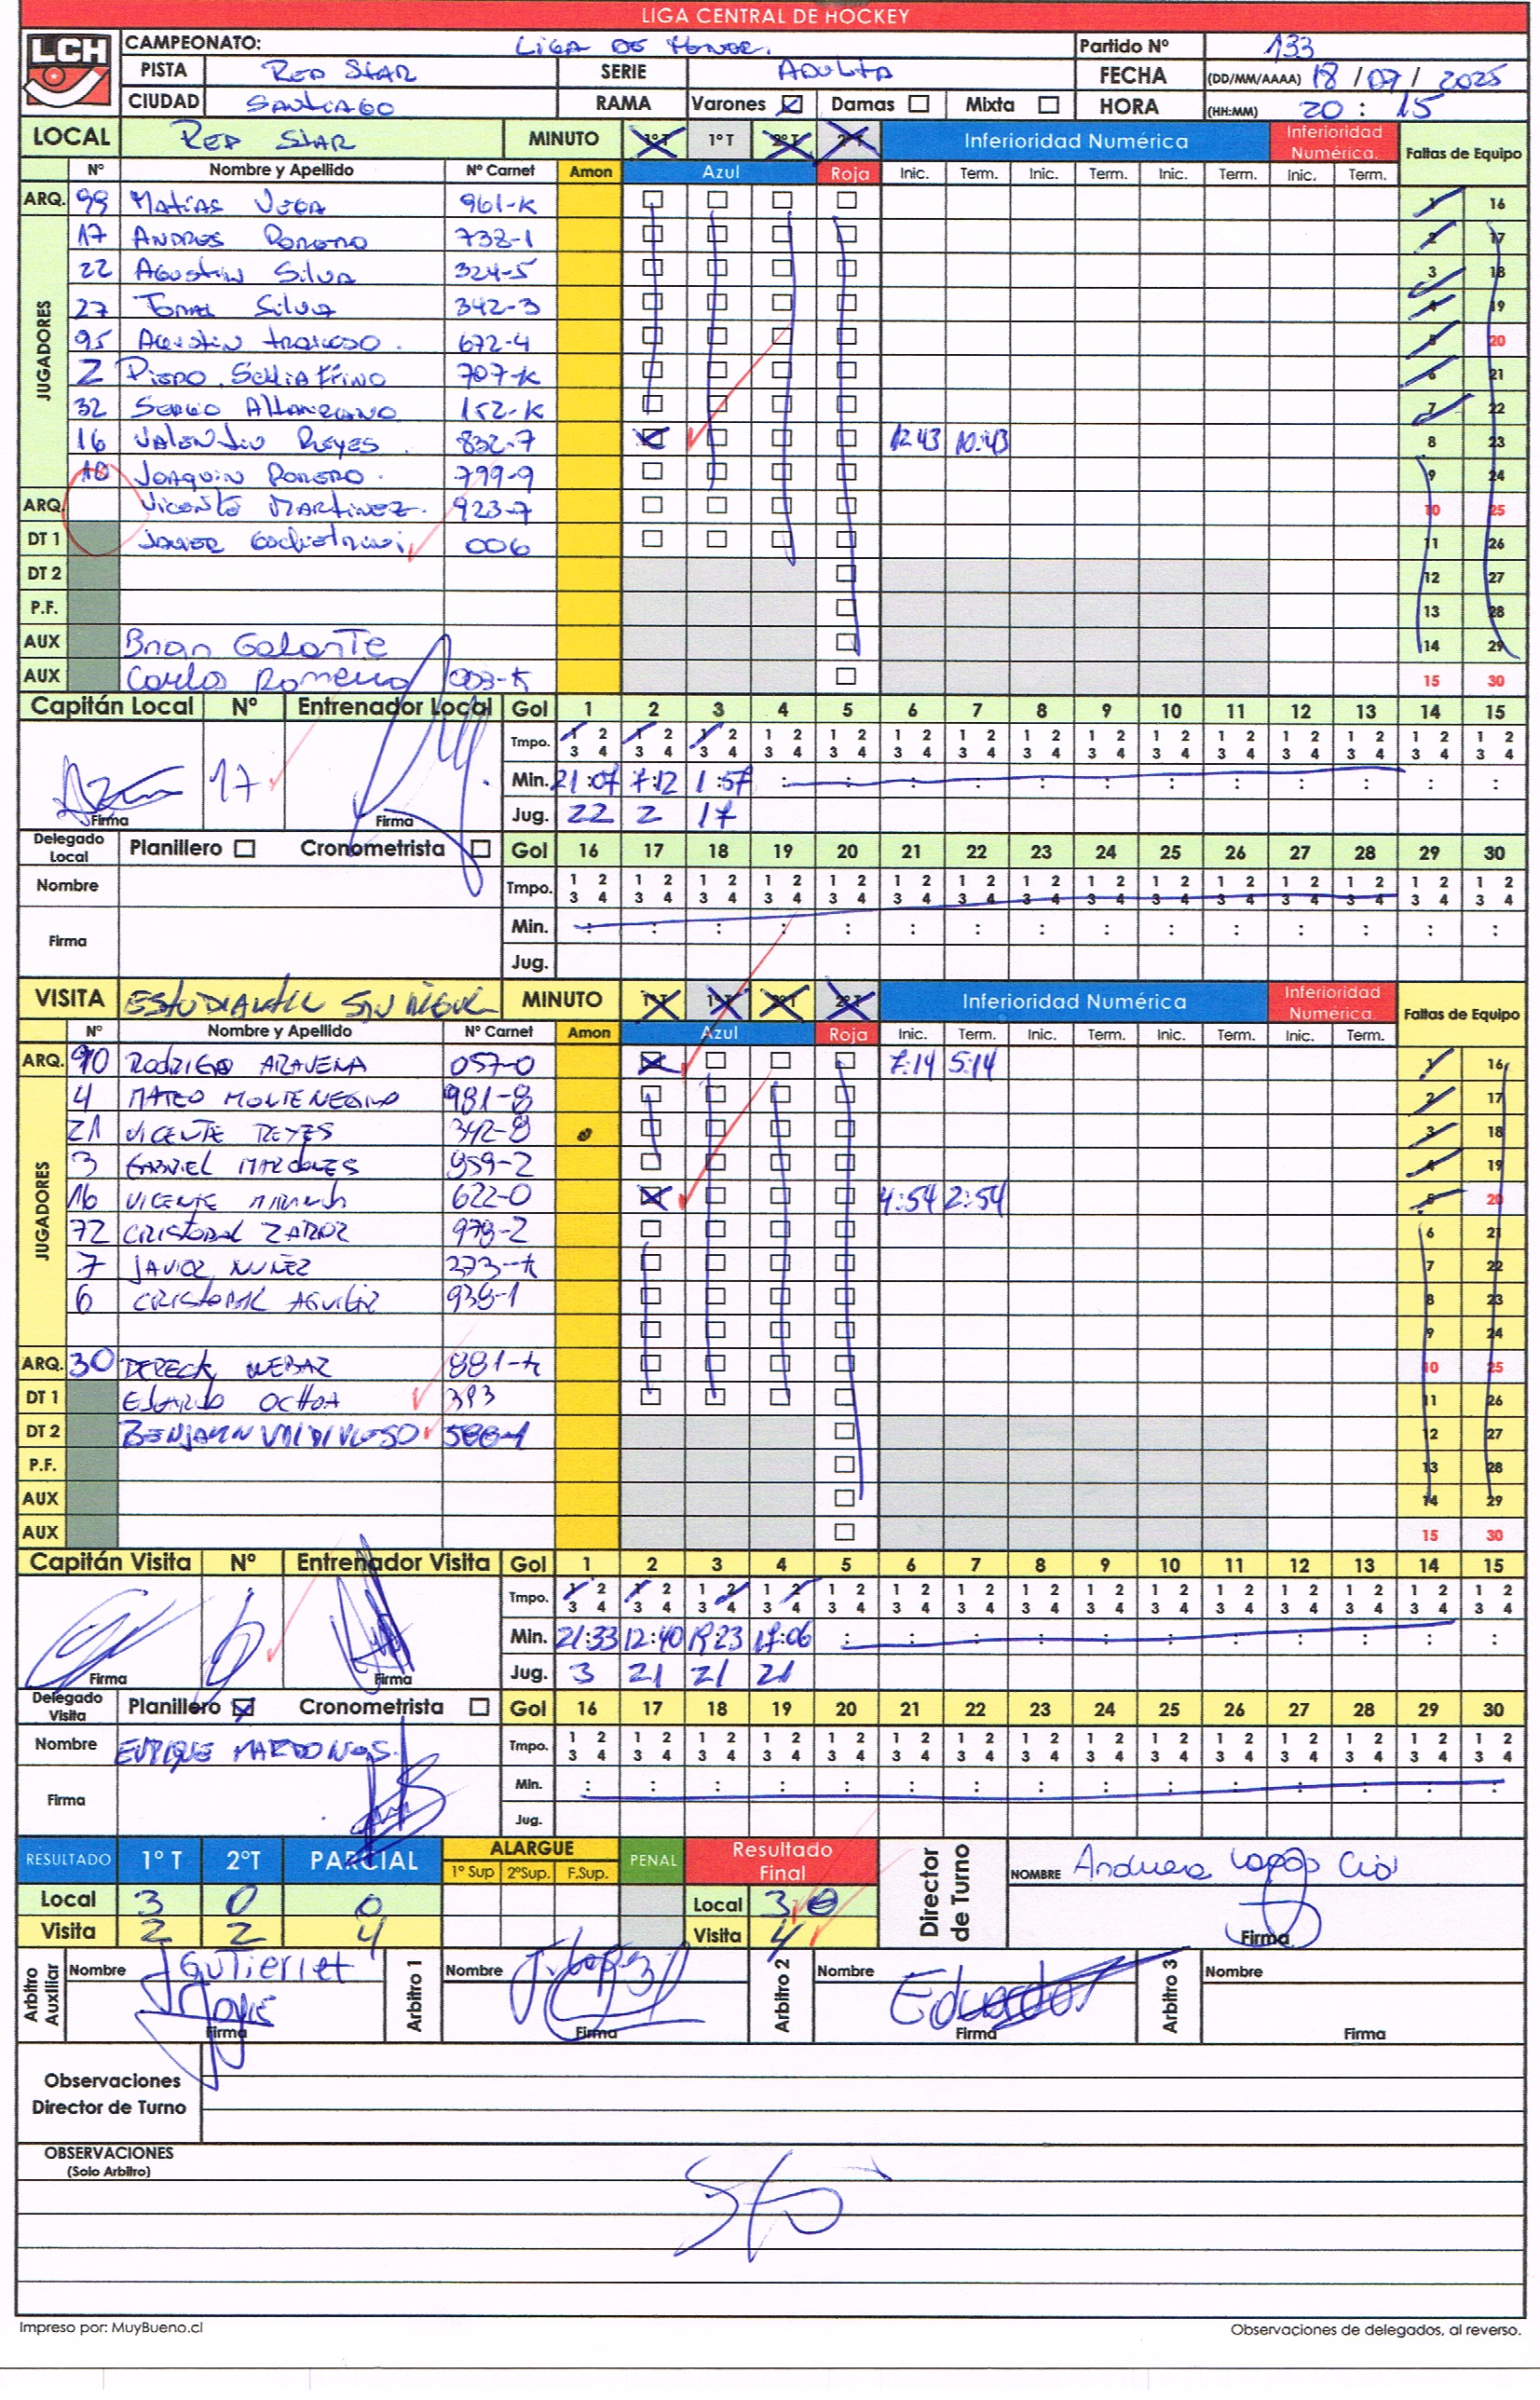 LIGA CENTRAL DE HOCKEY
LCH
CAMPEONATO: LIGA DE HONOR. Partido Nº 133
PISTA RED STAR SERIE ADULTA FECHA (DD/MM/AAAA) 18 / 07 / 2025
CIUDAD SANTIAGO RAMA Varones Damas Mixta HORA (HH:MM) 20 : 15
LOCAL RED STAR MINUTO 1º T 1º T 2º T 2º T Inferioridad Numérica Inferioridad Numérica. Faltas de Equipo
Nº Nombre y Apellido Nº Carnet Amon Azul Roja Inic. Term. Inic. Term. Inic. Term. Inic. Term.
ARQ. 99 Matías Vega 961-K 1 16
JUGADORES
17 Andres Romero 732-1 2 17
22 Agustin Silva 324-5 3 18
27 Tomas Silva 342-3 4 19
95 Agustin 672-4 5 20
2 Piero Schiaffino 707-K 6 21
32 Sergio 152-K 7 22
16 Valentin Reyes 832-7 12:43 10:43 8 23
10 Joaquin Romero 799-9 9 24
ARQ. Vicente Martinez 923-7 10 25
DT 1 Javier 006 11 26
DT 2 12 27
P.F. 13 28
AUX Brian Galarte 14 29
AUX Carlos Romero 003-K 15 30
Capitán Local Nº Entrenador Local Gol 1 2 3 4 5 6 7 8 9 10 11 12 13 14 15
Tmpo. 1 2 1 2 1 2 1 2 1 2 1 2 1 2 1 2 1 2 1 2 1 2 1 2 1 2 1 2 1 2
3 4 3 4 3 4 3 4 3 4 3 4 3 4 3 4 3 4 3 4 3 4 3 4 3 4 3 4 3 4
17 Min. 21:07 7:12 1:57 : : : : : : : : : : : :
Firma Firma Jug. 22 2 17
Delegado Local Planillero Cronometrista Gol 16 17 18 19 20 21 22 23 24 25 26 27 28 29 30
Nombre Tmpo. 1 2 1 2 1 2 1 2 1 2 1 2 1 2 1 2 1 2 1 2 1 2 1 2 1 2 1 2 1 2
3 4 3 4 3 4 3 4 3 4 3 4 3 4 3 4 3 4 3 4 3 4 3 4 3 4 3 4 3 4
Firma Min. : : : : : : : : : : : : : : :
Jug.
VISITA ESTUDIANTIL SAN MIGUEL MINUTO 1º T 1º T 2º T 2º T Inferioridad Numérica Inferioridad Numérica. Faltas de Equipo
Nº Nombre y Apellido Nº Carnet Amon Azul Roja Inic. Term. Inic. Term. Inic. Term. Inic. Term.
ARQ. 90 RODRIGO ARAVENA 057-0 7:14 5:14 1 16
JUGADORES
4 MATEO MONTENEGRO 981-8 2 17
21 VICENTE REYES 342-8 3 18
3 GABRIEL MARDONES 959-2 4 19
16 VICENTE 622-0 4:54 2:54 5 20
72 CRISTOBAL 978-2 6 21
7 JAVIER NUÑEZ 273-K 7 22
6 CRISTOBAL AGUILAR 938-1 8 23
9 24
ARQ. 30 DERECK 881-K 10 25
DT 1 EDUARDO OCHOA 393 11 26
DT 2 BENJAMIN VALDIVIESO 588-1 12 27
P.F. 13 28
AUX 14 29
AUX 15 30
Capitán Visita Nº Entrenador Visita Gol 1 2 3 4 5 6 7 8 9 10 11 12 13 14 15
Tmpo. 1 2 1 2 1 2 1 2 1 2 1 2 1 2 1 2 1 2 1 2 1 2 1 2 1 2 1 2 1 2
3 4 3 4 3 4 3 4 3 4 3 4 3 4 3 4 3 4 3 4 3 4 3 4 3 4 3 4 3 4
6 Min. 21:33 12:40 19:23 17:06 : : : : : : : : : : :
Firma Firma Jug. 3 21 21 21
Delegado Visita Planillero Cronometrista Gol 16 17 18 19 20 21 22 23 24 25 26 27 28 29 30
Nombre ENRIQUE MARDONES. Tmpo. 1 2 1 2 1 2 1 2 1 2 1 2 1 2 1 2 1 2 1 2 1 2 1 2 1 2 1 2 1 2
3 4 3 4 3 4 3 4 3 4 3 4 3 4 3 4 3 4 3 4 3 4 3 4 3 4 3 4 3 4
Firma Min. : : : : : : : : : : : : : : :
Jug.
RESULTADO 1º T 2ºT PARCIAL ALARGUE 1º Sup 2ºSup. F.Sup. PENAL Resultado Final Director de Turno NOMBRE Andrea Lopez Cid
Local 3 0 0 Local 3
Visita 2 2 4 Visita 4 Firma
Arbitro Auxiliar Nombre J Gutierrez Arbitro 1 Nombre J. Lopez Arbitro 2 Nombre Eduardo Arbitro 3 Nombre
Firma Firma Firma Firma
Observaciones
Director de Turno
OBSERVACIONES
(Solo Arbitro)
Impreso por: MuyBueno.cl Observaciones de delegados, al reverso.